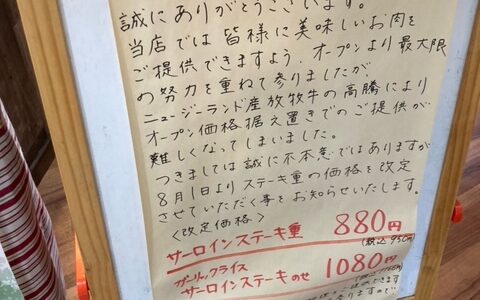 誠にありがとうございます。
当店では皆様に美味しいお肉を
ご提供できますよう、オープンより最大限
の努力を重ねて参りましたが
ニュージーランド産放牧牛の高騰により
オープン価格据え置きでのご提供が
難しくなってしまいました。
つきましては誠に不本意ではありますが
8月1日よりステーキ重の価格を改定
させていただく事をお知らせいたします。
<改定価格>
サーロインステーキ重 880円
(税込950円)
ガーリックライス
サーロインステーキのせ 1080円